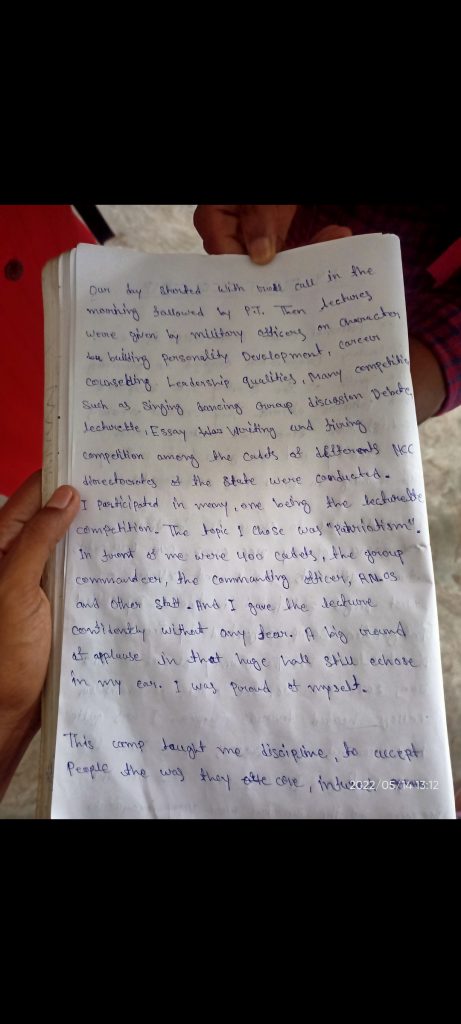 Our day started with roll call in the
morining followed by P.T. Then lectures
were given by military officers on character
building personality Development, career
counselling Leadership qualities, Many competitio
such as singing dancing Group discussion Debate,
lecturette, Essay Writing and firing
competition among the cadets of differents NCC
directorates of the State were conducted.
I participated in many, one being the lecturette
competition. The topic I chose was "Patriotism".
In front of me were 400 cadets, the goroup
commandeer, the commanding officer, A.N.Os
and other staff. And I gave the lecture
confidently without any fear. A big oround
of applause in that huge hall still echose
in my ear. I was poroud of myself.
This camp taught me discipline, to accept
People the was they are
2022/05/14 13:12